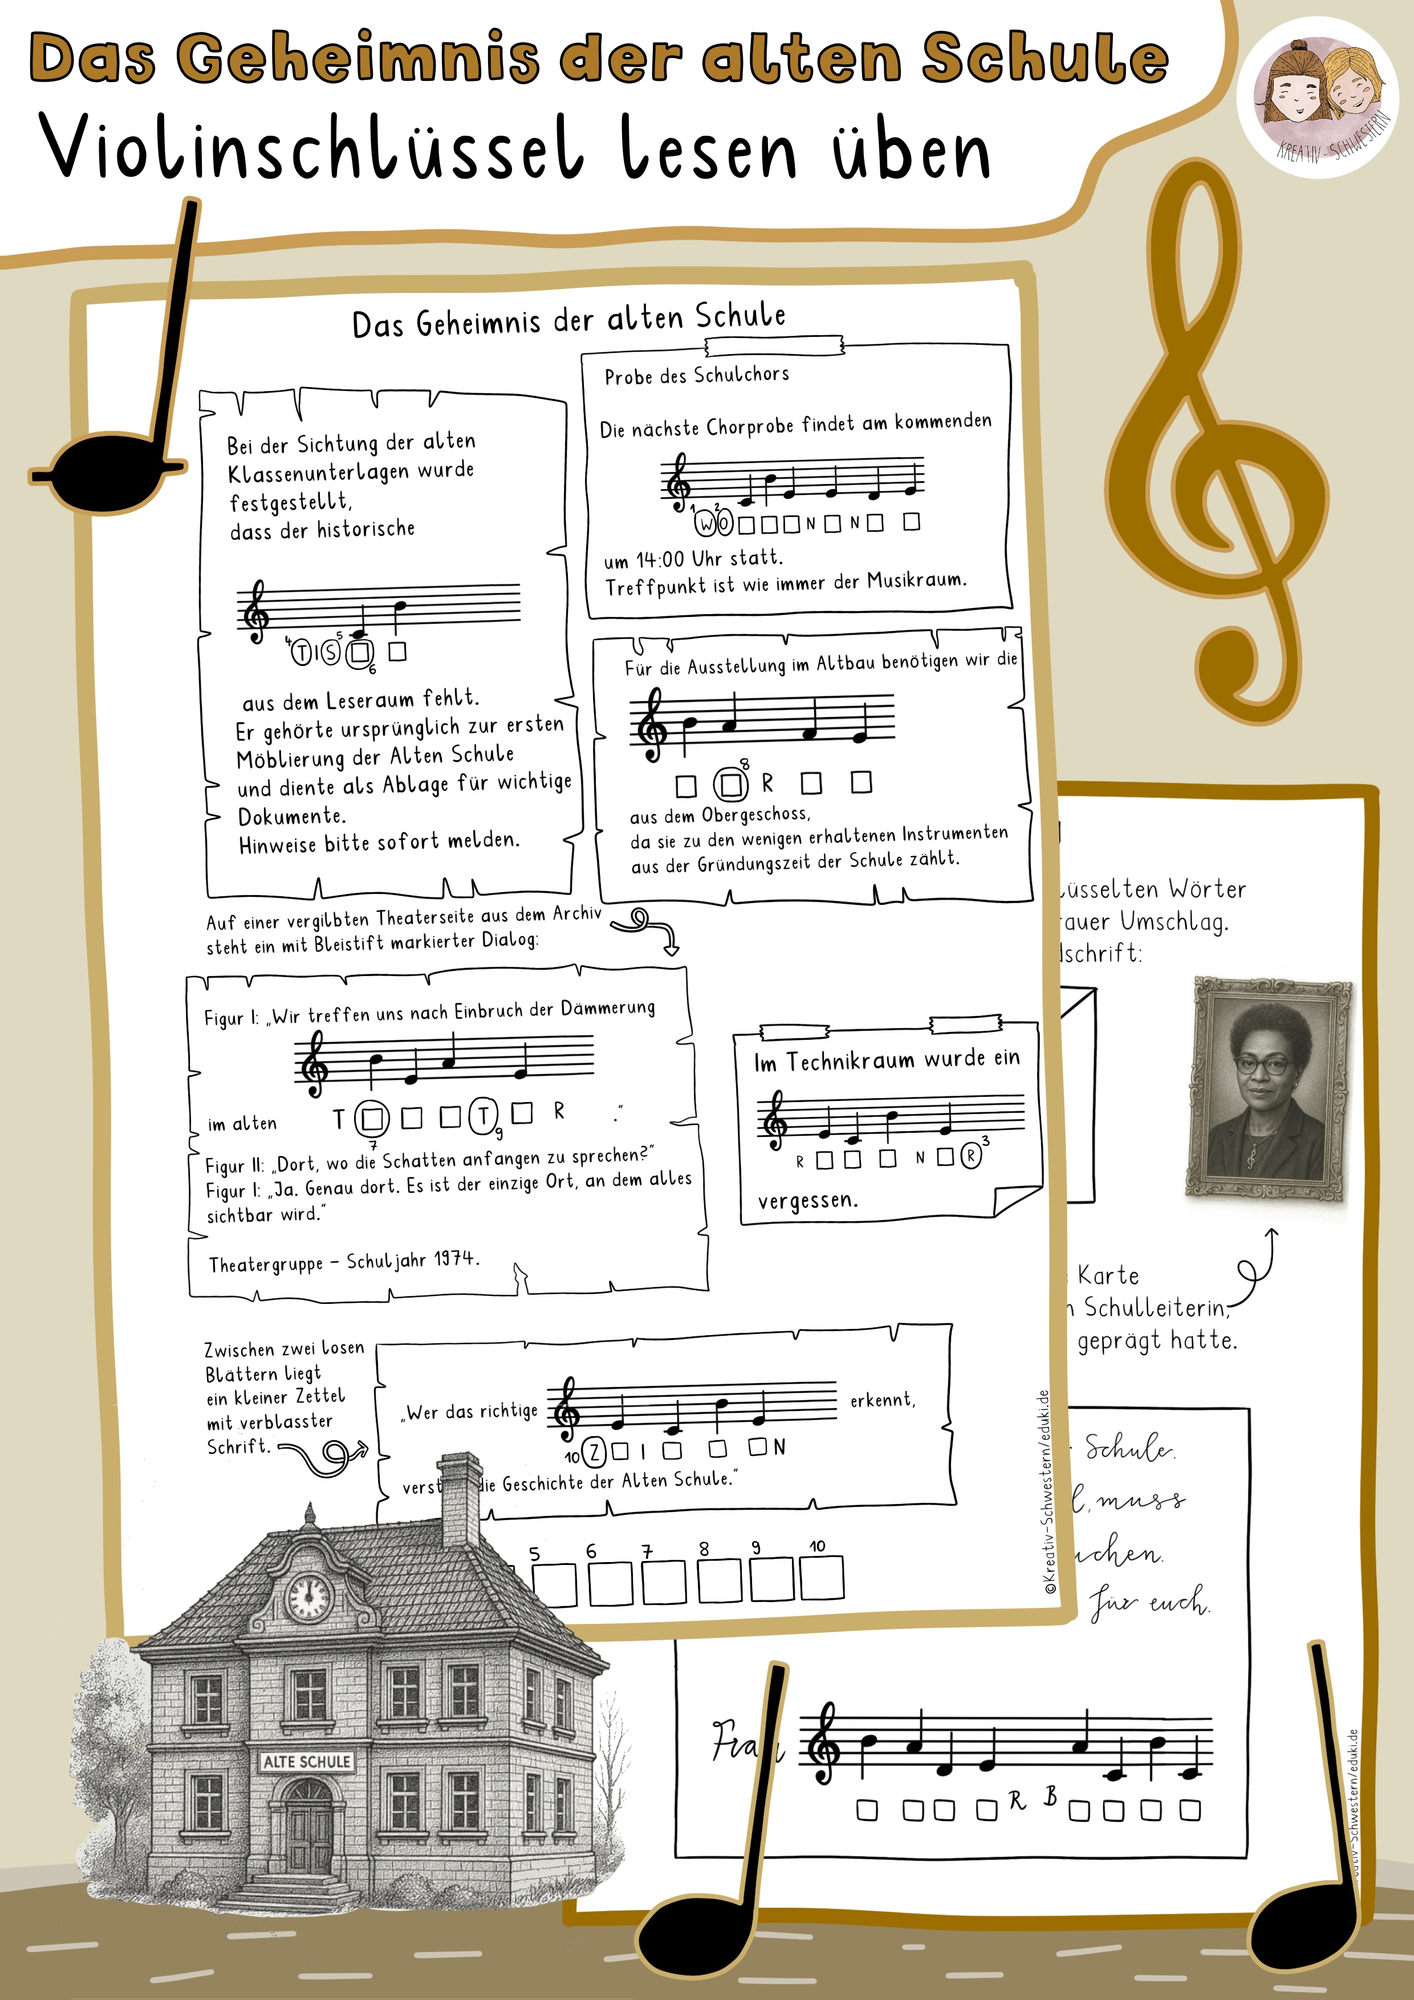 Das Geheimnis der alten Schule
Violinschlüssel lesen üben
KREATIV-SCHWESTERN
Das Geheimnis der alten Schule
Bei der Sichtung der alten
Klassenunterlagen wurde
festgestellt,
dass der historische
4 5
T I S
6
aus dem Leseraum fehlt.
Er gehörte ursprünglich zur ersten
Möblierung der Alten Schule
und diente als Ablage für wichtige
Dokumente.
Hinweise bitte sofort melden.
Probe des Schulchors
Die nächste Chorprobe findet am kommenden
1 2
W O N N
um 14:00 Uhr statt.
Treffpunkt ist wie immer der Musikraum.
Für die Ausstellung im Altbau benötigen wir die
8
R
aus dem Obergeschoss,
da sie zu den wenigen erhaltenen Instrumenten
aus der Gründungszeit der Schule zählt.
Auf einer vergilbten Theaterseite aus dem Archiv
steht ein mit Bleistift markierter Dialog:
Figur I: „Wir treffen uns nach Einbruch der Dämmerung
im alten T T R .“
7 9
Figur II: „Dort, wo die Schatten anfangen zu sprechen?“
Figur I: „Ja. Genau dort. Es ist der einzige Ort, an dem alles
sichtbar wird.“
Theatergruppe – Schuljahr 1974.
Im Technikraum wurde ein
R N R 3
vergessen.
Zwischen zwei losen
Blättern liegt
ein kleiner Zettel
mit verblasster
Schrift.
„Wer das richtige erkennt,
10 Z I N
verst die Geschichte der Alten Schule.“
5 6 7 8 9 10
©Kreativ-Schwestern/eduki.de
lüsselten Wörter
rauer Umschlag.
dschrift:
Karte
n Schulleiterin,
geprägt hatte.
Schule.
l, muss
uchen.
für euch.
Frau
R B
eativ-Schwestern/eduki.de
ALTE SCHULE